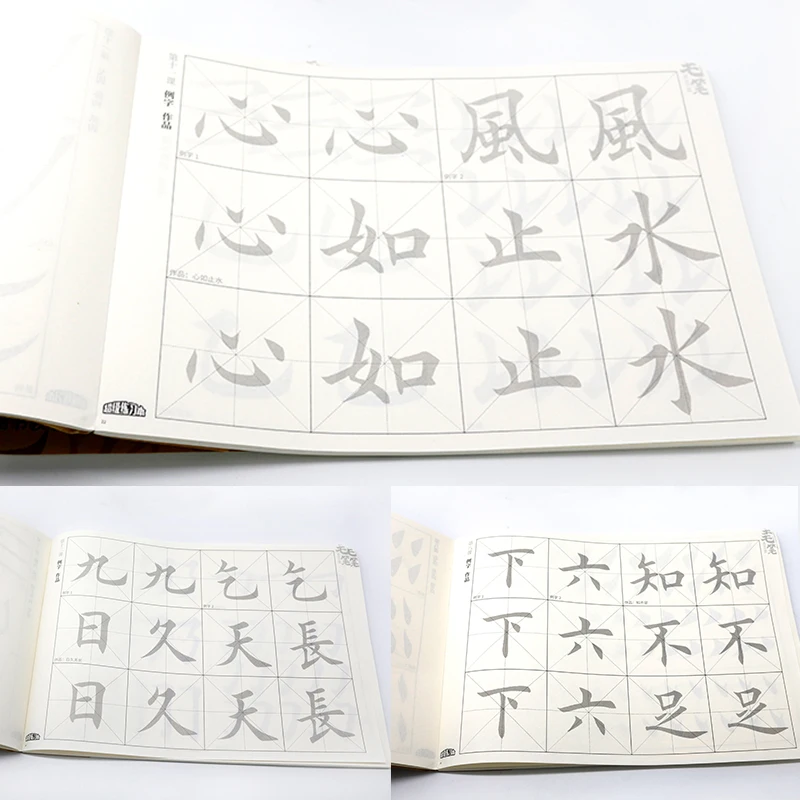 毛笔
第十一课 例字 作品
心心風風
例字1
例字2
心如止水
作品：心如止水
心如止水
九九乞乞
日久天長
日久天長
毛笔
例字 作品
下六知知
下六不不
下六足足